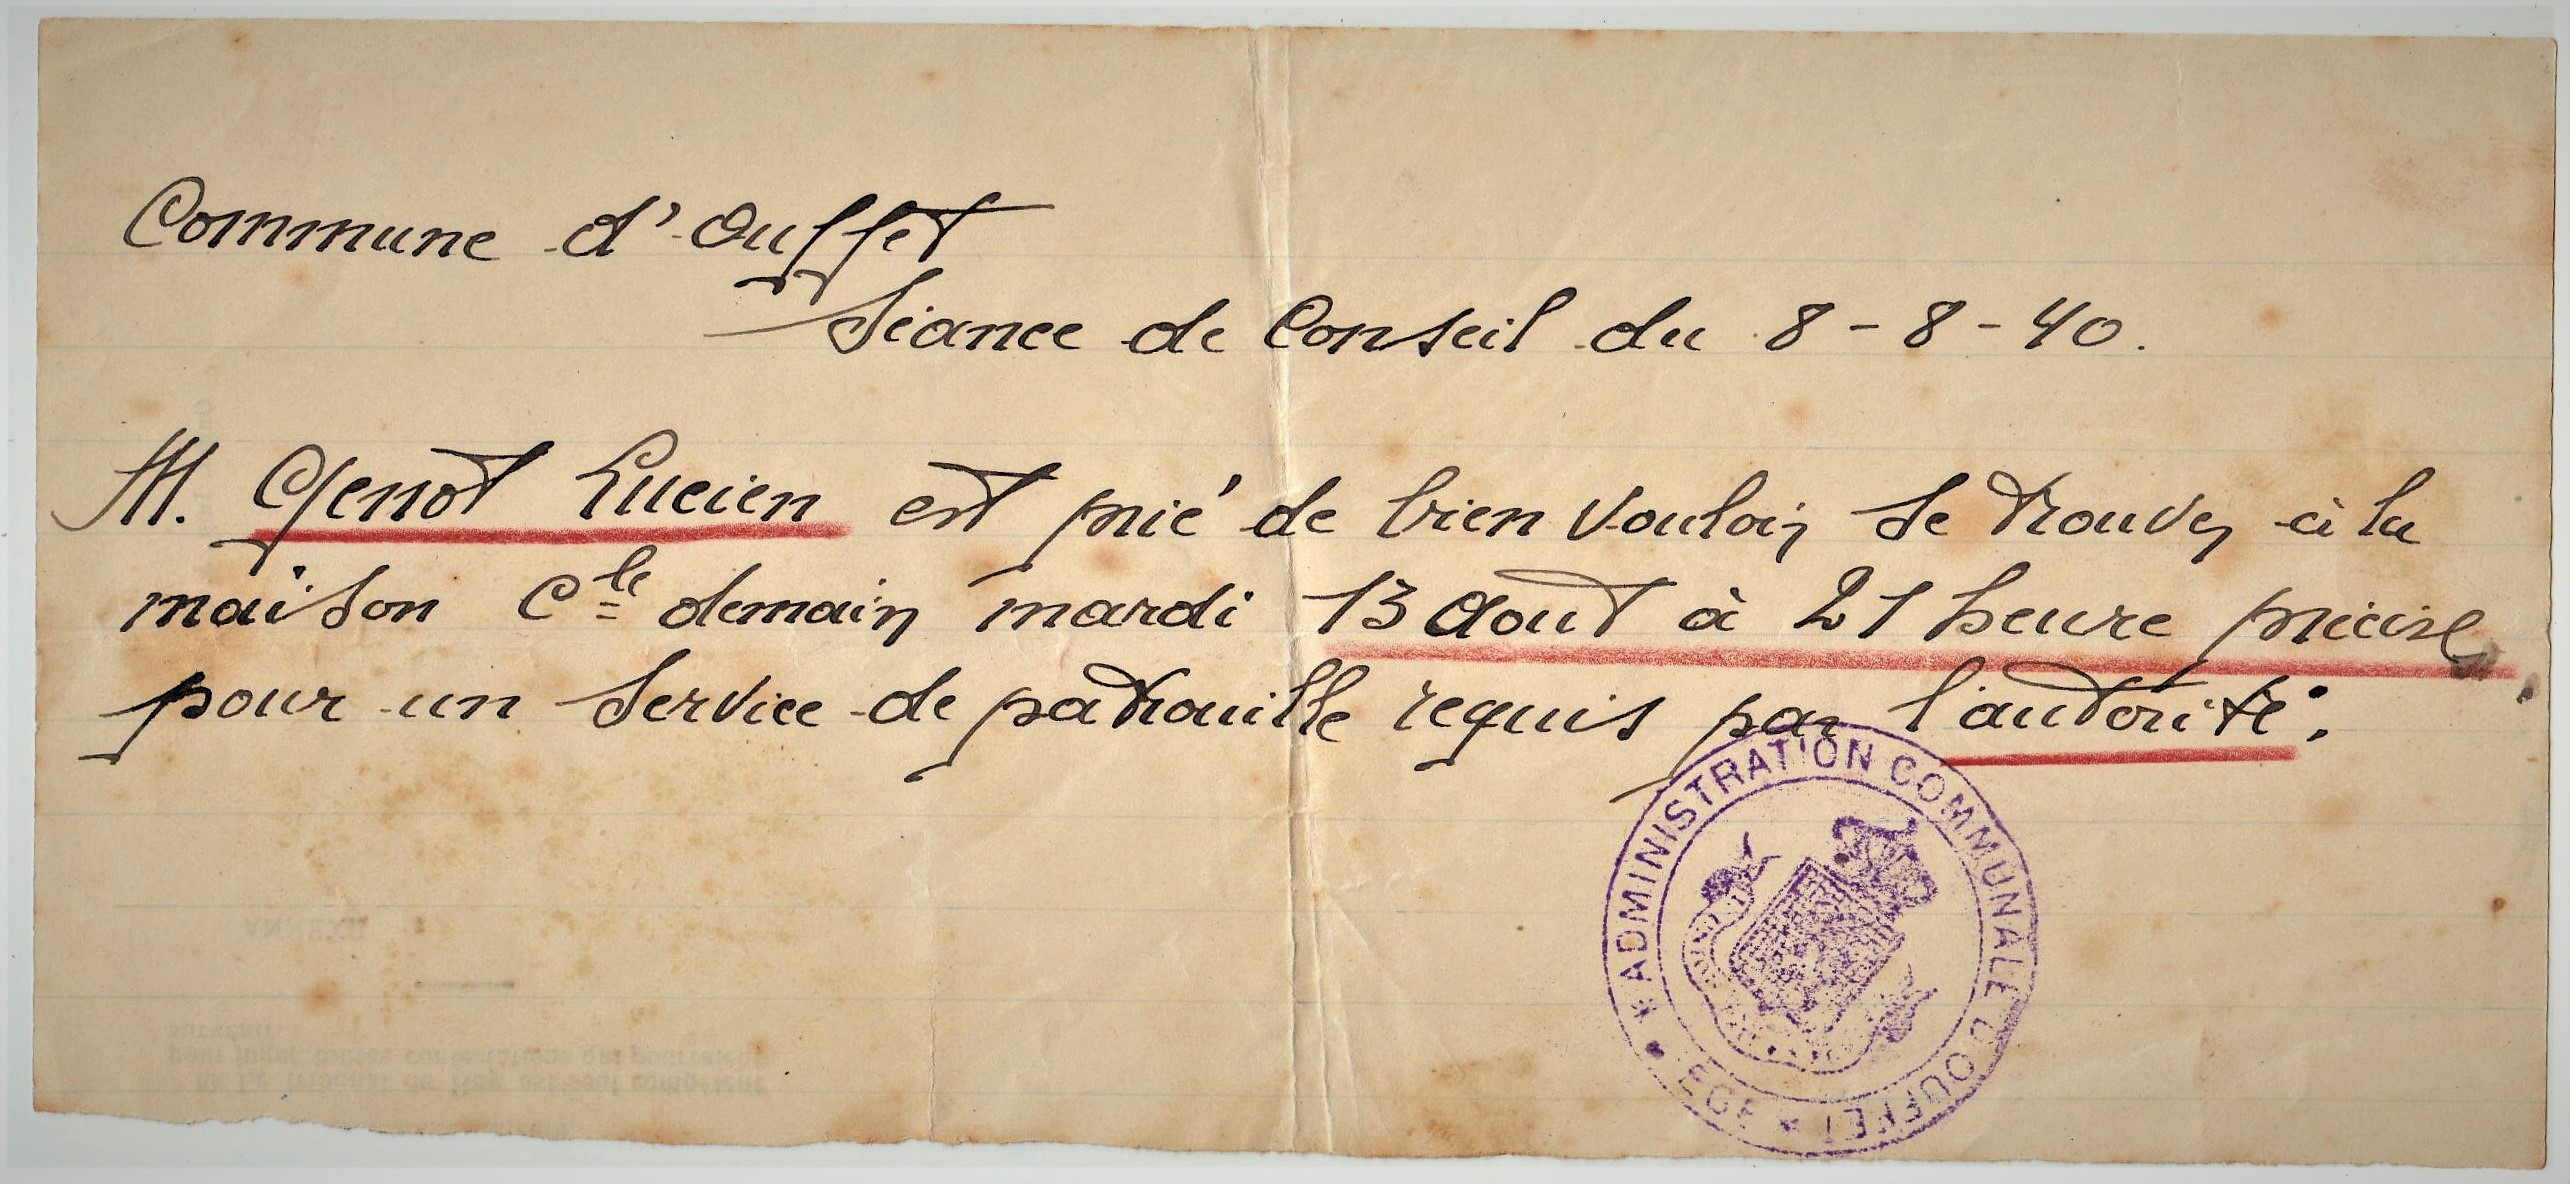 Commune d'Ouffet
Séance de Conseil du 8-8-40.
M. Genot Lucien est prié de bien vouloir se trouver à la
maison Cle demain mardi 13 Aout à 21 heure précise
pour un service de patrouille requis par l'autorité.
* ADMINISTRATION COMMUNALE D'OUFFET